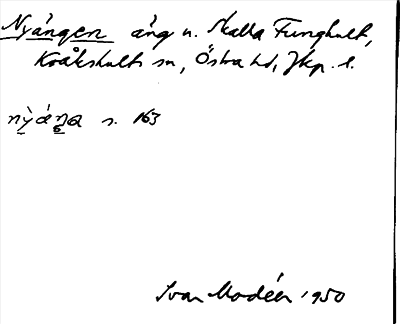 Nyängen äng u. Skalla Funghult,
Kråkshult sn, Östra hd, Jkp. l.
nỳáŋa s. 163
Ivar Modéer 1950